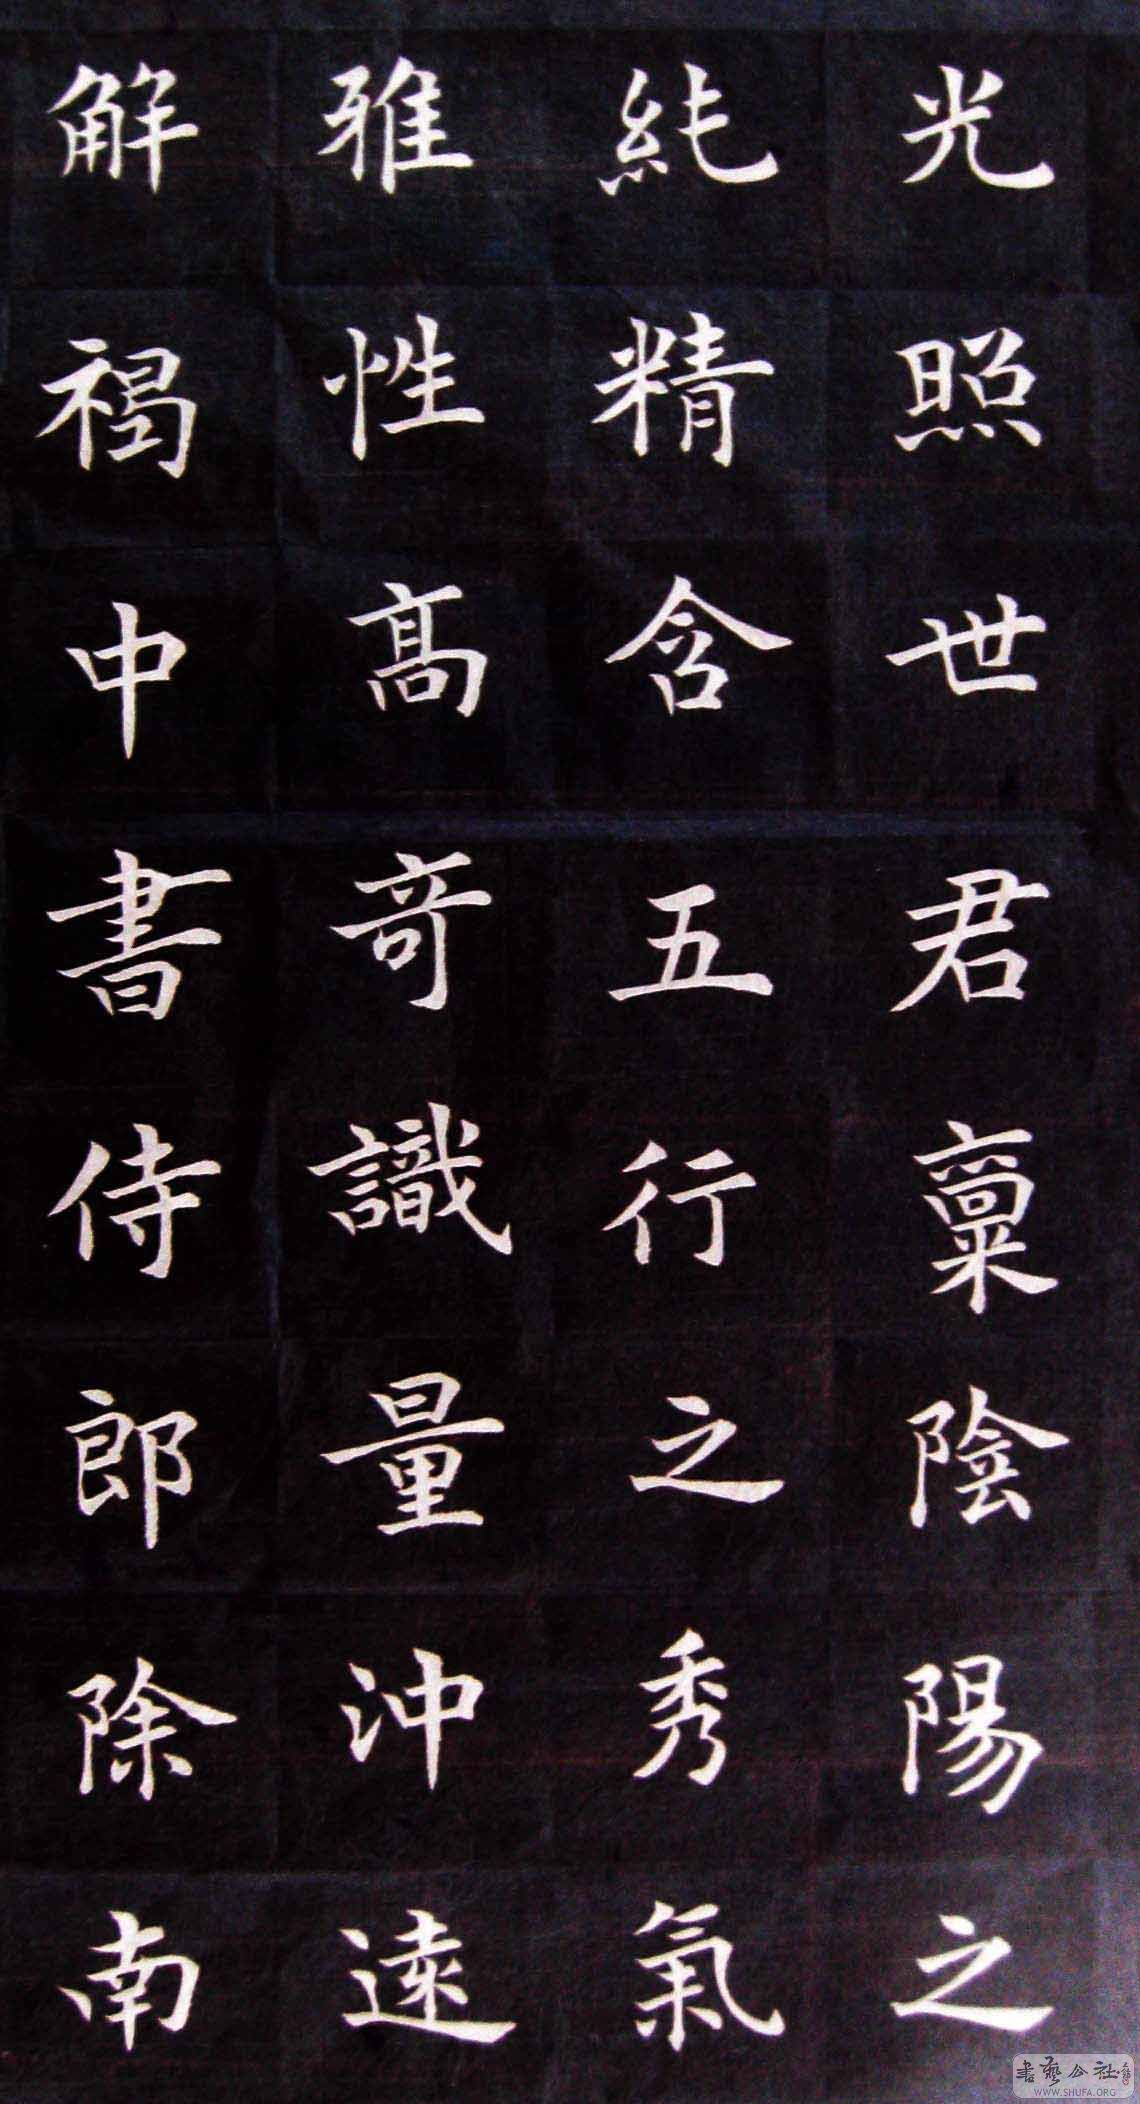 光照世君稟陰陽之
純精含五行之秀氣
雅性高奇識量沖遠
解褐中書侍郎除南
書藝公社
WWW.SHUFA.ORG